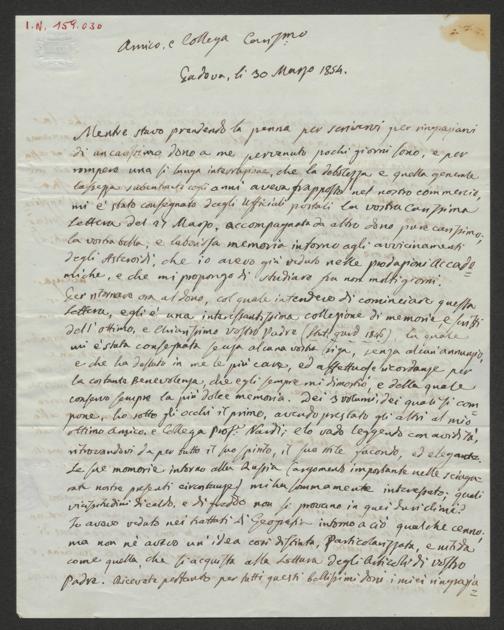 I.N. 159.030
Amico, e Collega Carissmo
Padova, li 30 Marzo 1854.
Mentre stavo prendendo la penna per scrivervi per ringraziarvi
di un carissimo dono a me pervenuto pochi giorni sono, e per
rompere una sì lunga interruzione, che la debolezza e quella generale
lassezza subentrati cogli anni aveva frapposto nel nostro commercio,
mi è stato consegnato dagli Uffiziali postali la vostra Carissima
Lettera del 27 Marzo, accompagnata da altro dono pure carissimo,
la vostra bella, e laboriosa memoria intorno agli avvicinamenti
degli Asteroidi, che io avevo già veduto nelle produzioni Accade
miche, e che mi propongo di studiare fra non molti giorni.
Per ritornare ora al dono, col quale intendevo di cominciare questa
Lettera, egli è una interessantissima collezione di memorie, e scritti
dell'ottimo, e Chiarissimo Vostro Padre (Stuttgard 1846), la quale
mi è stata consegnata senza alcuna vostra riga, senza alcun annunzio,
e che ha destato in me le più care, ed affettuose ricordanze per
la costante Benevolenza, che egli sempre mi dimostrò, e della quale
conservo sempre la più dolce memoria. Dei 3 volumi, dei quali si com
pone, ho sotto gli occhi il primo, avendo prestato gli altri al mio
ottimo Amico, e Collega Profr. Nardi; e lo vado leggendo con avidità,
ritrovandovi da per tutto il suo spirito, il suo stile facondo, ed elegante.
Le sue memorie intorno alla Russia (argomento importante nelle sciagu
rate nostre presenti circostanze) mi ha sommamente interessato; quali
vicissitudini di caldo, e di freddo non si provano in quei duri climi?
Io avevo veduto nei trattati di Geografia intorno a ciò qualche cenno,
ma non ne avevo un'idea così distinta, particolarizzata, e nitida
come quella, che si acquista alla Lettura degli Articoli di vostro
Padre. Ricevete pertanto per tutti questi bellissimi doni i miei ringrazia